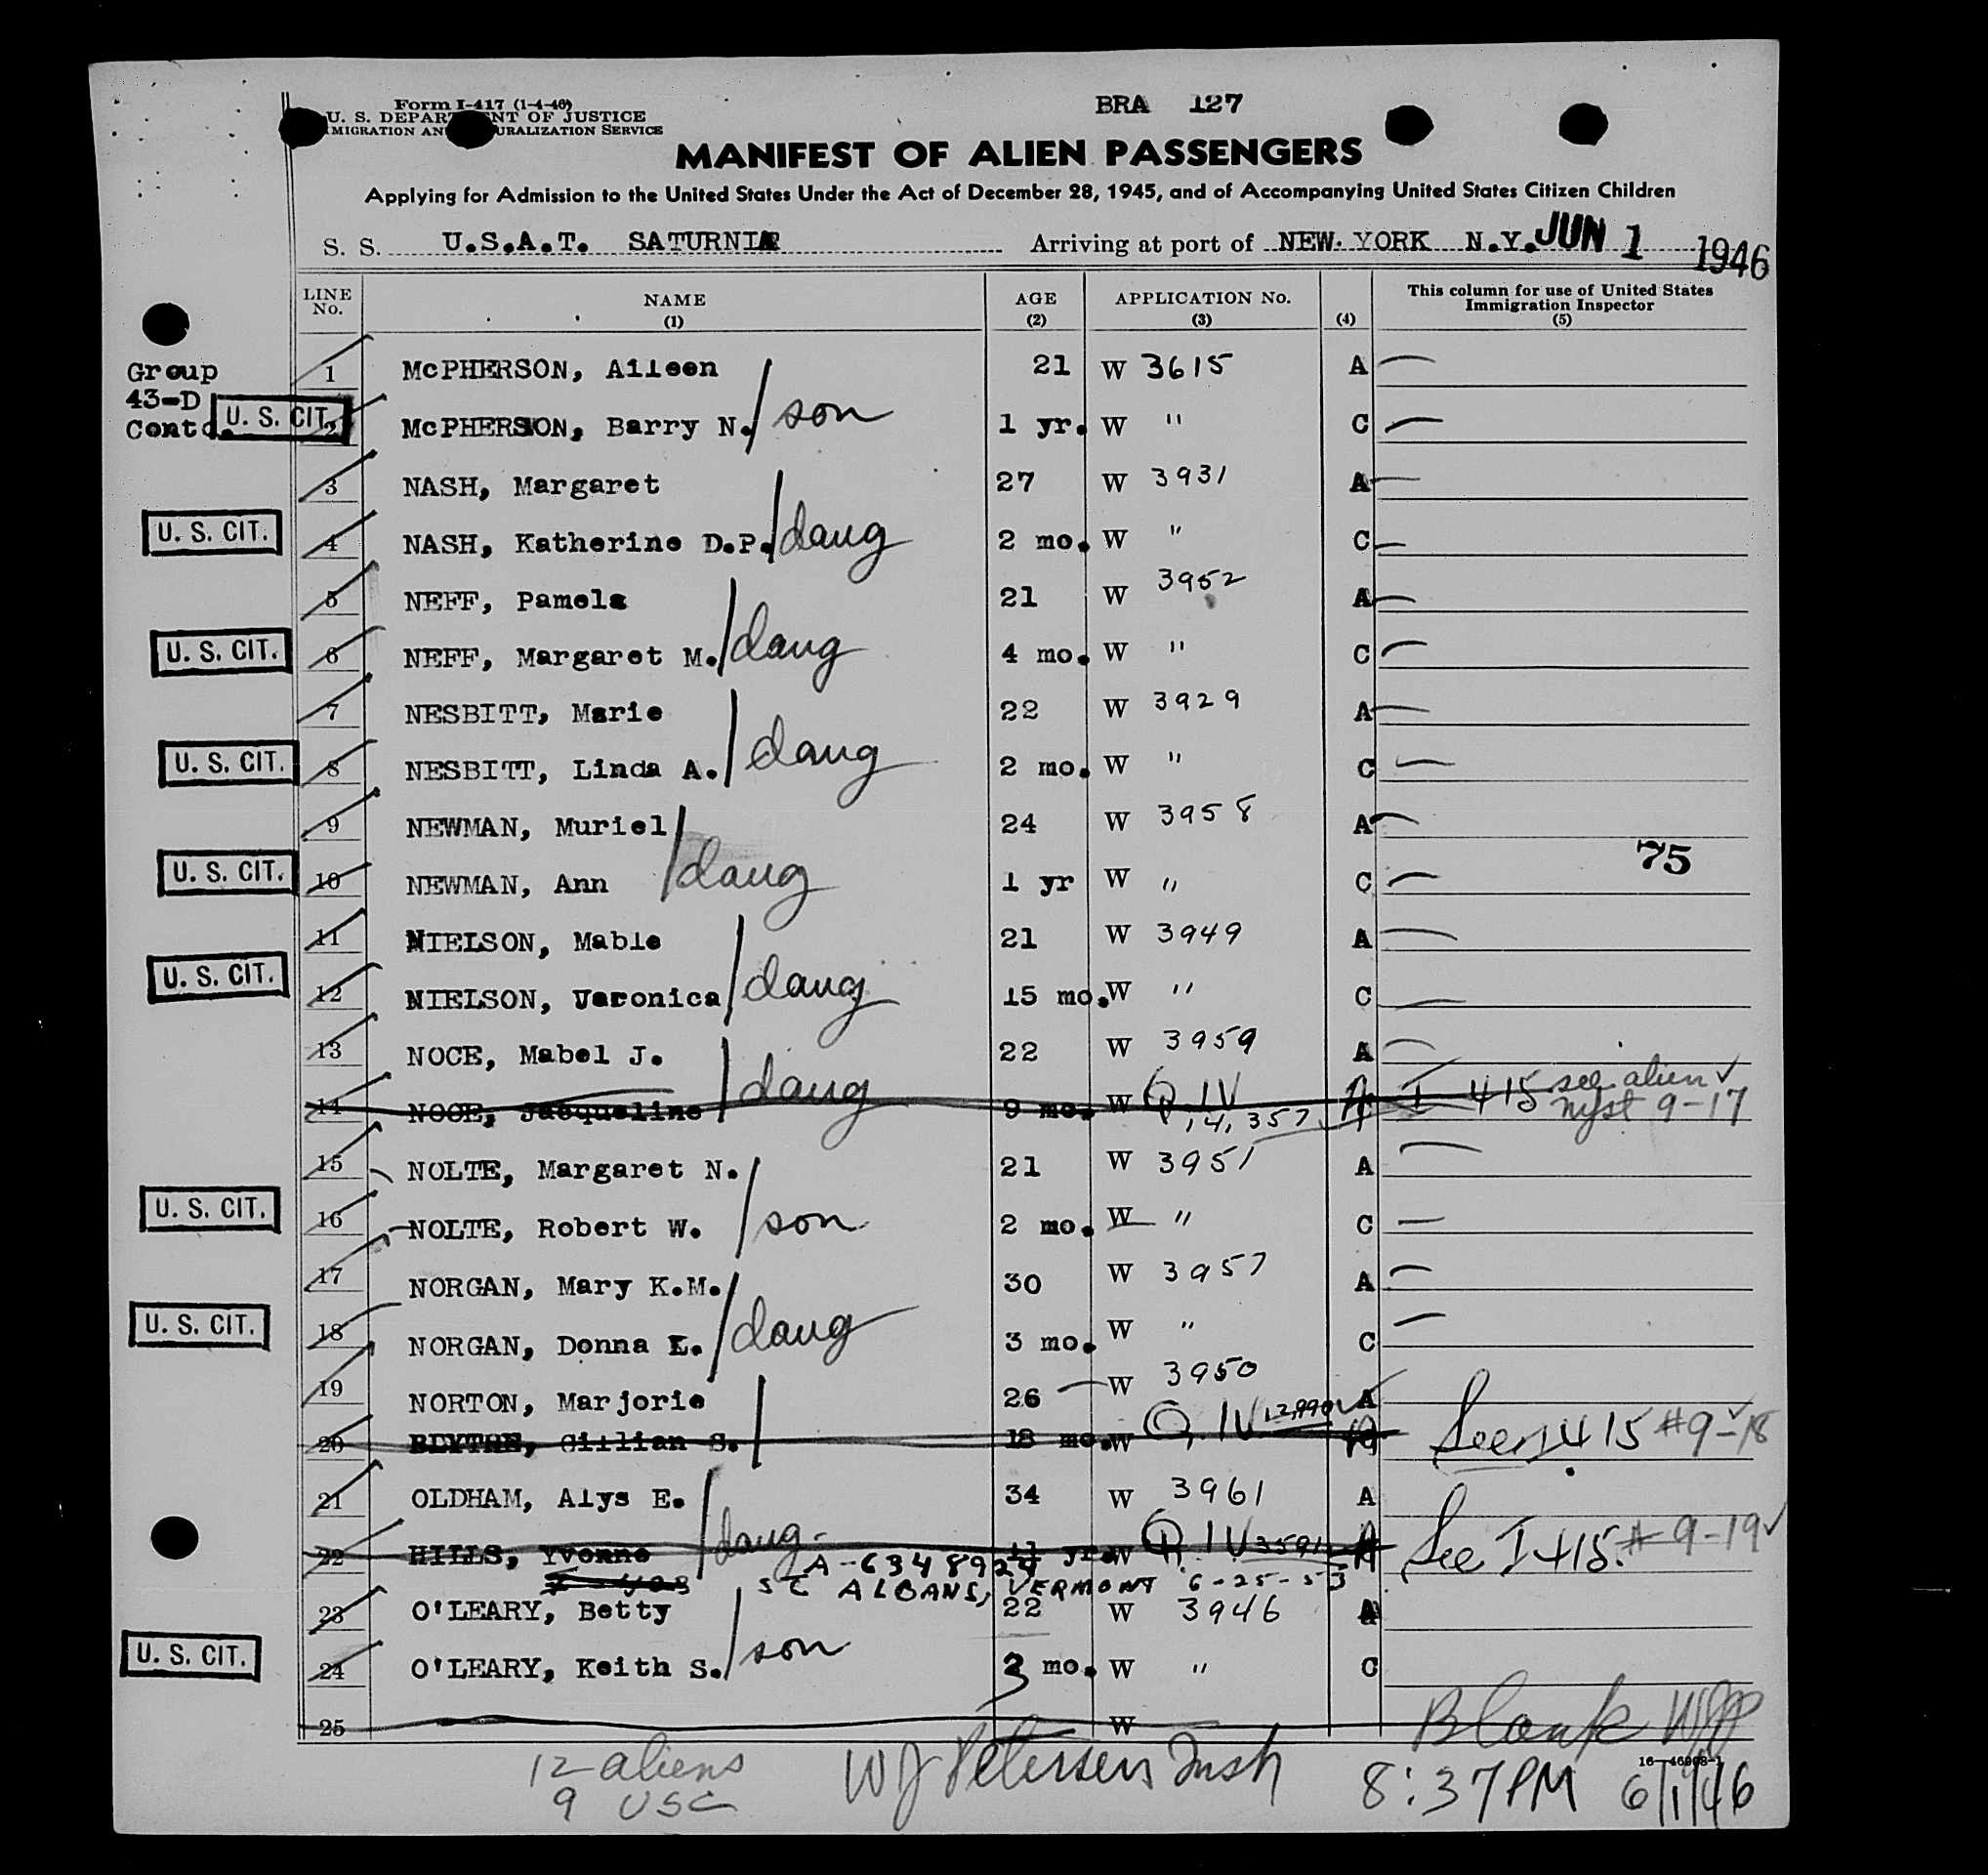 Form I-417 (1-4-46)
BRA 127
U. S. DEPARTMENT OF JUSTICE
IMMIGRATION AND NATURALIZATION SERVICE
MANIFEST OF ALIEN PASSENGERS
Applying for Admission to the United States Under the Act of December 28, 1945, and of Accompanying United States Citizen Children
S. S. U.S.A.T. SATURNIA Arriving at port of NEW YORK N.Y. JUN 1 1946
LINE No. NAME (1) AGE (2) APPLICATION No. (3) (4) This column for use of United States Immigration Inspector (5)
Group 43-D Contd.
1 McPHERSON, Aileen 21 W 3615 A
U. S. CIT. 2 McPHERSON, Barry N. son 1 yr. W " C
3 NASH, Margaret 27 W 3931 A
U. S. CIT. 4 NASH, Katherine D.P. daug 2 mo. W " C
5 NEFF, Pamela 21 W 3952 A
U. S. CIT. 6 NEFF, Margaret M. daug 4 mo. W " C
7 NESBITT, Marie 22 W 3929 A
U. S. CIT. 8 NESBITT, Linda A. daug 2 mo. W " C
9 NEWMAN, Muriel 24 W 3958 A
75
U. S. CIT. 10 NEWMAN, Ann daug 1 yr W " C
11 NIELSON, Mable 21 W 3949 A
U. S. CIT. 12 NIELSON, Veronica daug 15 mo. W " C
13 NOCE, Mabel J. 22 W 3959 A
14 NOCE, Jacqueline daug 9 mo. W Q IV 14,357 A I 415 see alien 9-17
15 NOLTE, Margaret N. 21 W 3951 A
U. S. CIT. 16 NOLTE, Robert W. son 2 mo. W " C
17 NORGAN, Mary K.M. 30 W 3957 A
U. S. CIT. 18 NORGAN, Donna L. daug 3 mo. W " C
19 NORTON, Marjorie 26 W 3950 A
20 BLYTHE, Gillian S. 18 mo. W Q IV 12,990 A See I 415 #9-18
21 OLDHAM, Alys E. 34 W 3961 A
22 HILLS, Yvonne daug. 11 yr. W Q IV 3591 A See I 415. # 9-19
A-6348924
ST ALBANS, VERMONT 6-25-53
23 O'LEARY, Betty 22 W 3946 A
U. S. CIT. 24 O'LEARY, Keith S. son 3 mo. W " C
25 W Blank WJP
16-46998-1
12 aliens W J Petersen Insp 8:37 PM 6/1/46
9 USC